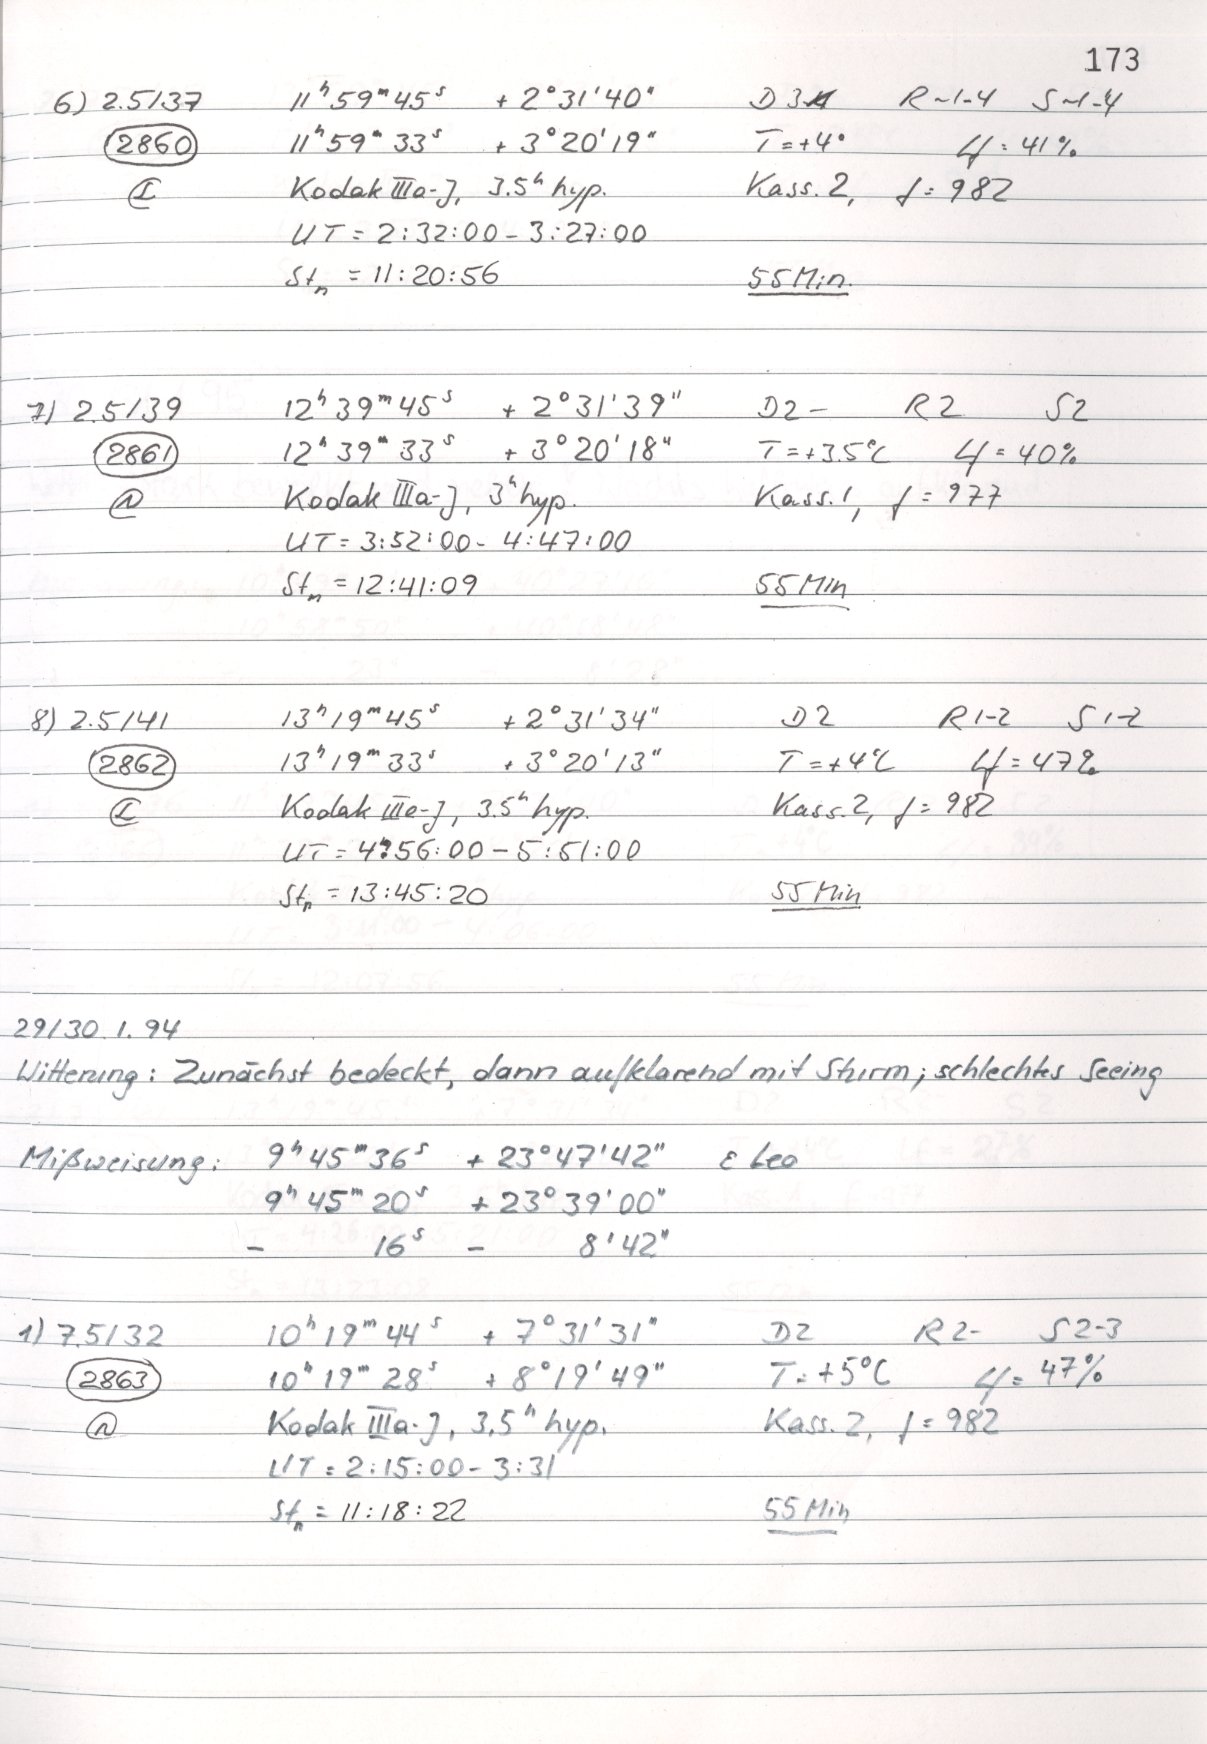 173
6) 2.5/37 11ʰ59ᵐ45ˢ +2°31'40" D3 R~1-4 S~1-4
2860 11ʰ59ᵐ33ˢ +3°20'19" T=+4° Lf=41%
Kodak IIIa-J, 3.5ʰ hyp. Kass. 2, f=982
UT=2:32:00-3:27:00
Stₙ=11:20:56 55Min.
7) 2.5/39 12ʰ39ᵐ45ˢ +2°31'39" D2- R2 S2
2861 12ʰ39ᵐ33ˢ +3°20'18" T=+3.5°C Lf=40%
Kodak IIIa-J, 3ʰ hyp. Kass. 1, f=977
UT=3:52:00-4:47:00
Stₙ=12:41:09 55Min
8) 2.5/41 13ʰ19ᵐ45ˢ +2°31'34" D2 R1-2 S1-2
2862 13ʰ19ᵐ33ˢ +3°20'13" T=+4°C Lf=47%
Kodak IIIa-J, 3.5ʰ hyp. Kass. 2, f=982
UT=4:56:00-5:51:00
Stₙ=13:45:20 55Min
29/30.1.94
Witterung: Zunächst bedeckt, dann aufklarend mit Sturm; schlechtes Seeing
Mißweisung: 9ʰ45ᵐ36ˢ +23°47'42" ε Leo
9ʰ45ᵐ20ˢ +23°39'00"
- 16ˢ - 8'42"
1) 7.5/32 10ʰ19ᵐ44ˢ +7°31'31" D2 R2- S2-3
2863 10ʰ19ᵐ28ˢ +8°19'49" T=+5°C Lf=47%
Kodak IIIa-J, 3.5ʰ hyp. Kass. 2, f=982
UT=2:15:00-3:31
Stₙ=11:18:22 55Min